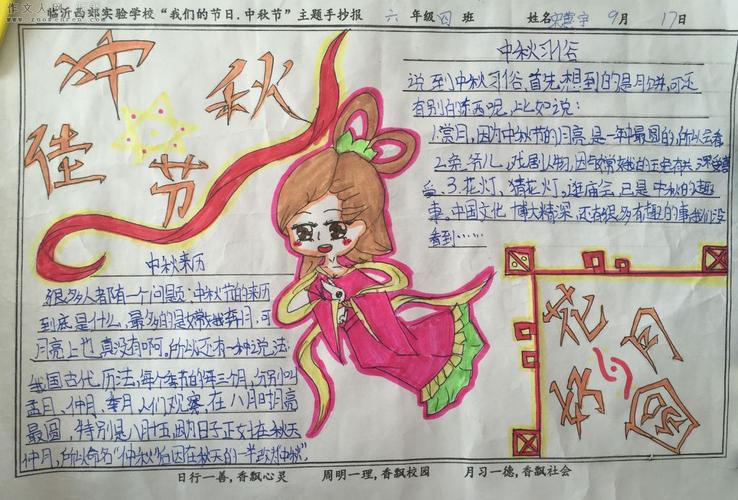 作文人网
zuowenren.com
临沂西郊实验学校“我们的节日.中秋节”主题手抄报 六 年级 四 班 姓名 宇 9月 17日
冲秋
佳节
中秋习俗
说到中秋习俗,首先,想到的是月饼,可还
有别的东西呢,比如说:
1.赏月,因为中秋节的月亮,是一年中最圆的,所以会看
2.兔爷儿,戏剧人物,因与嫦娥的玉兔有关,深受喜
爱、3.花灯,猜花灯,逛庙会,已是中秋的趣
事,中国文化博大精深,还有很多有趣的事我们没
看到……
中秋来历
很多人都有一个问题:中秋节的来历
到底是什么,最多的是嫦娥奔月,可
月亮上也真没有啊。所以还有一种说法:
我国古代历法,每个季节的年三个月,分别叫
孟月、仲月、季月,人们观察,在八月时月亮
最圆,特别是八月十五,因为日子正好在秋天
仲月,所以命名“仲秋”后因在秋天的一半改为“中秋”。
花好
月圆
日行一善,香飘心灵 周明一理,香飘校园 月习一德,香飘社会